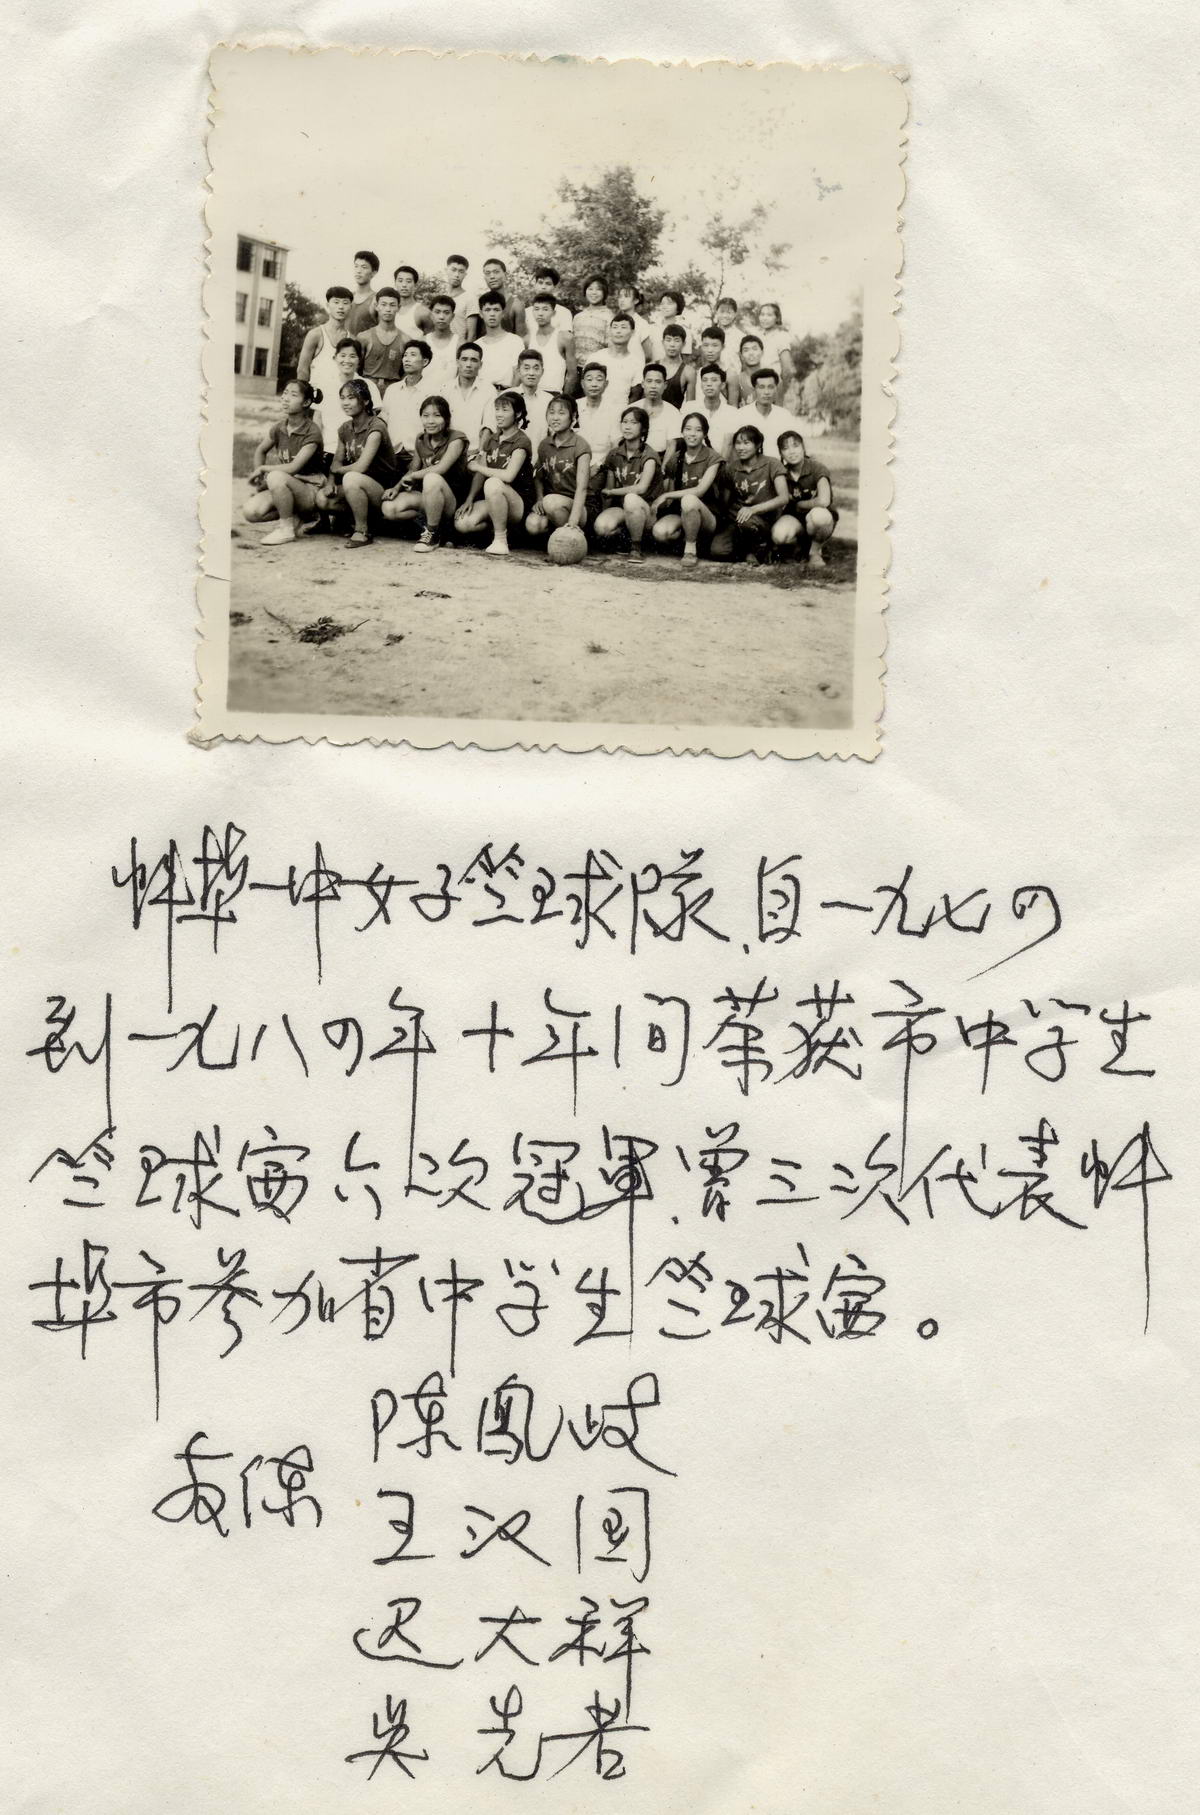 蚌埠一中女子篮球隊.自一九七四
到一九八四年十年间荣获市中学生
篮球赛六次冠軍.曾三次代表蚌
埠市参加省中学生篮球赛。
陈凤岐
教练
王汉国
迟大祥
吴先若